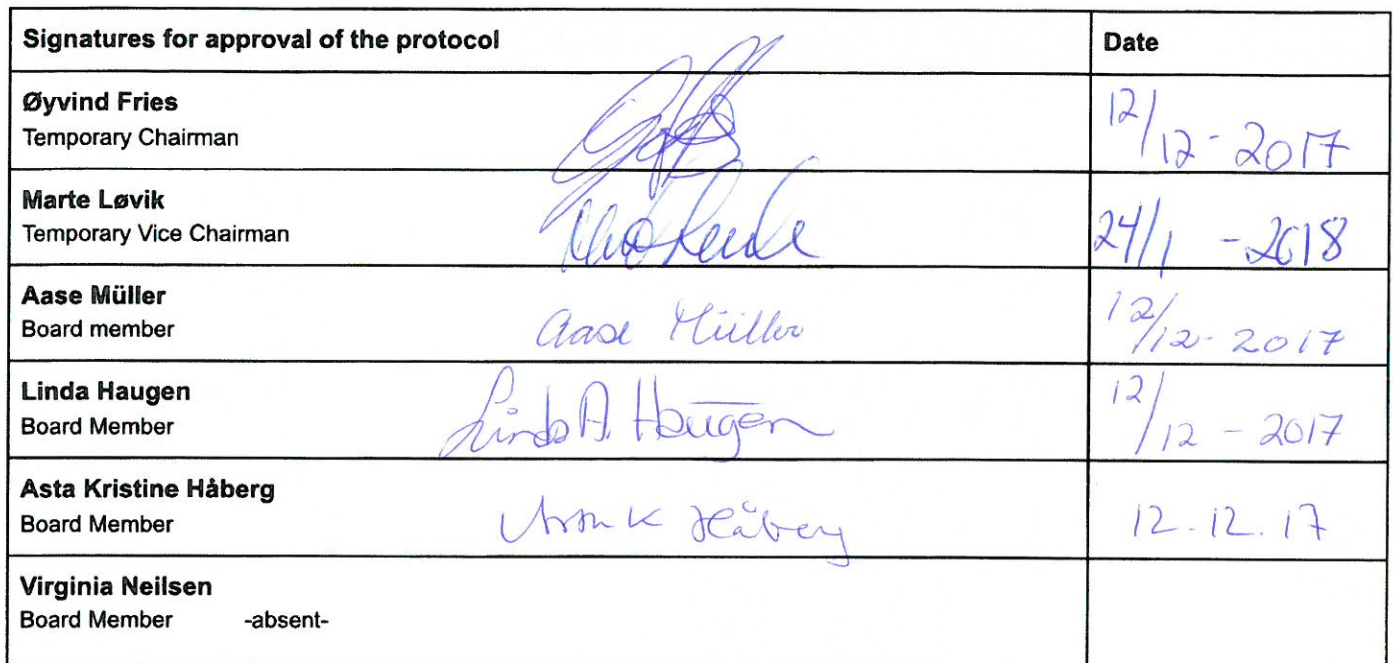 Signatures for approval of the protocol Date
Øyvind Fries
Temporary Chairman
12/12-2017
Marte Løvik
Temporary Vice Chairman
24/1 -2018
Aase Müller
Board member
Aase Müller
12/12-2017
Linda Haugen
Board Member
Linda A. Haugen
12/12-2017
Asta Kristine Håberg
Board Member
Asta K Håberg
12.12.17
Virginia Neilsen
Board Member -absent-